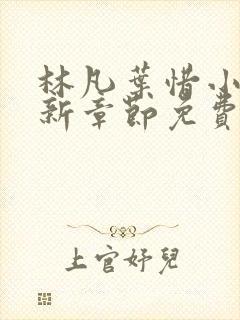 林凡葉惜小
新章節免費
上官好兒